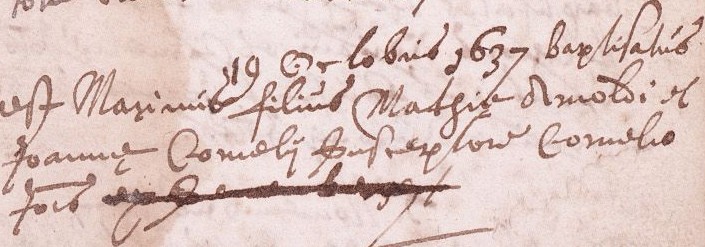 19 Octobris 1637 baptisatus
est Maximus filius Mathiæ Arnoldi et
Joannę Cornelij susceptore Cornelio
Jois